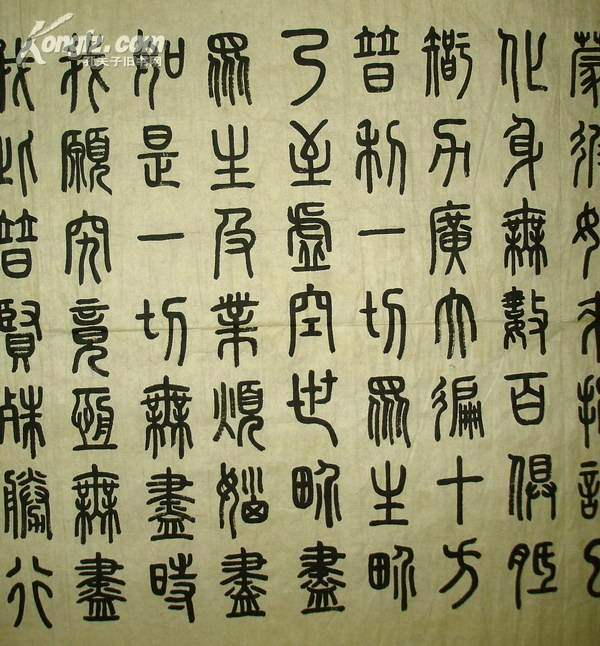 蒙彼如來授記已
化身無數百俱胝
智力廣大徧十方
普利一切眾生界
乃至虛空世界盡
眾生及業煩惱盡
如是一切無盡時
我願究竟恆無盡
我此普賢殊勝行
Kongfz.com
孔夫子旧书网